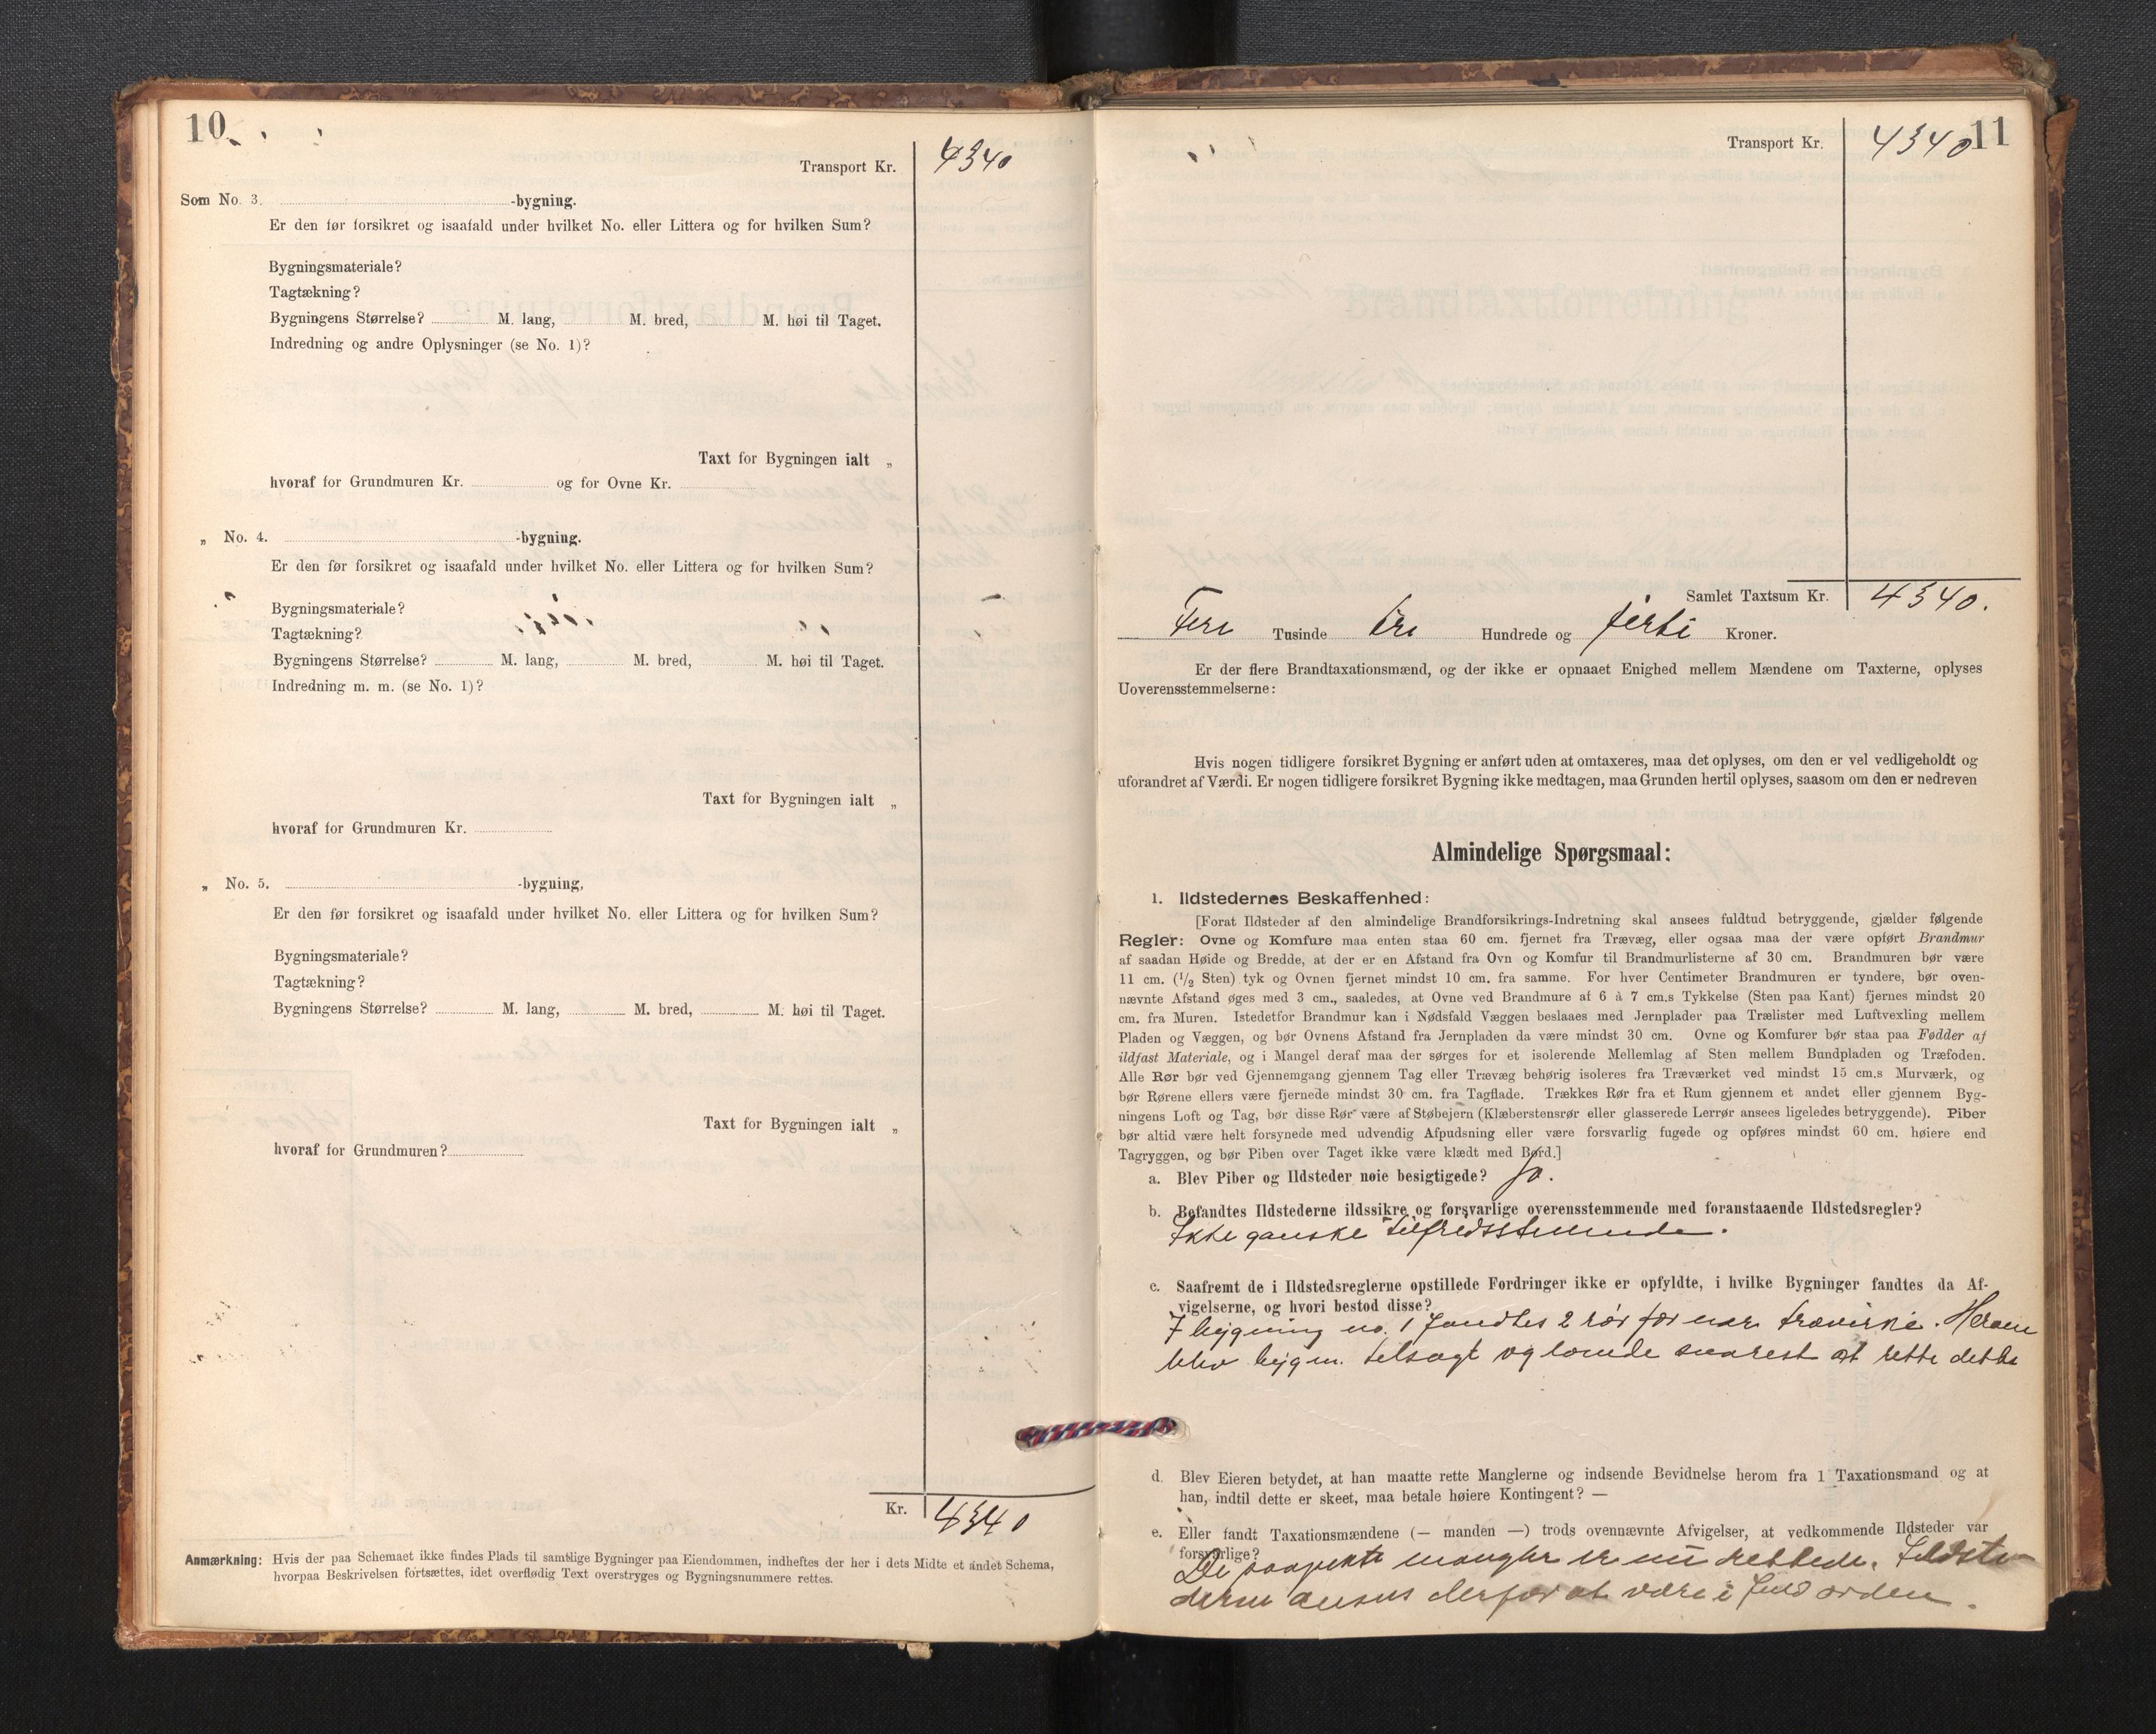 10
Transport Kr. 4340
Som No. 3. -bygning.
Er den før forsikret og isaafald under hvilket No. eller Littera og for hvilken Sum?
Bygningsmateriale?
Tagtækning?
Bygningens Størrelse? M. lang, M. bred, M. høi til Taget.
Indredning og andre Oplysninger (se No. 1)?
Taxt for Bygningen ialt „
hvoraf for Grundmuren Kr. og for Ovne Kr.
„ No. 4. -bygning.
Er den før forsikret og isaafald under hvilket No. eller Littera og for hvilken Sum?
Bygningsmateriale?
Tagtækning?
Bygningens Størrelse? M. lang, M. bred, M. høi til Taget.
Indredning m. m. (se No. 1)?
Taxt for Bygningen ialt „
hvoraf for Grundmuren Kr.
„ No. 5. -bygning,
Er den før forsikret og isaafald under hvilket No. eller Littera og for hvilken Sum?
Bygningsmateriale?
Tagtækning?
Bygningens Størrelse? M. lang, M. bred, M. høi til Taget.
Taxt for Bygningen ialt „
hvoraf for Grundmuren?
Kr. 4340
Anmærkning: Hvis der paa Schemaet ikke findes Plads til samtlige Bygninger paa Eiendommen, indheftes der her i dets Midte et andet Schema,
hvorpaa Beskrivelsen fortsættes, idet overflødig Text overstryges og Bygningsnummere rettes.
11
Transport Kr. 4340
Samlet Taxtsum Kr. 4340.
Fire Tusinde tre Hundrede og firti Kroner.
Er der flere Brandtaxationsmænd, og der ikke er opnaaet Enighed mellem Mændene om Taxterne, oplyses
Uoverensstemmelserne:
Hvis nogen tidligere forsikret Bygning er anført uden at omtaxeres, maa det oplyses, om den er vel vedligeholdt og
uforandret af Værdi. Er nogen tidligere forsikret Bygning ikke medtagen, maa Grunden hertil oplyses, saasom om den er nedreven
Almindelige Spørgsmaal:
1. Ildstedernes Beskaffenhed:
[Forat Ildsteder af den almindelige Brandforsikrings-Indretning skal ansees fuldtud betryggende, gjælder følgende
Regler: Ovne og Komfure maa enten staa 60 cm. fjernet fra Trævæg, eller ogsaa maa der være opført Brandmur
af saadan Høide og Bredde, at der er en Afstand fra Ovn og Komfur til Brandmurlisterne af 30 cm. Brandmuren bør være
11 cm. (1/2 Sten) tyk og Ovnen fjernet mindst 10 cm. fra samme. For hver Centimeter Brandmuren er tyndere, bør oven-
nævnte Afstand øges med 3 cm., saaledes, at Ovne ved Brandmure af 6 à 7 cm.s Tykkelse (Sten paa Kant) fjernes mindst 20
cm. fra Muren. Istedetfor Brandmur kan i Nødsfald Væggen beslaaes med Jernplader paa Trælister med Luftvexling mellem
Pladen og Væggen, og bør Ovnens Afstand fra Jernpladen da være mindst 30 cm. Ovne og Komfurer bør staa paa Fødder af
ildfast Materiale, og i Mangel deraf maa der sørges for et isolerende Mellemlag af Sten mellem Bundpladen og Træfoden.
Alle Rør bør ved Gjennemgang gjennem Tag eller Trævæg behørig isoleres fra Træværket ved mindst 15 cm.s Murværk, og
bør Rørene ellers være fjernede mindst 30 cm. fra Tagflade. Trækkes Rør fra et Rum gjennem et andet eller gjennem Byg-
ningens Loft og Tag, bør disse Rør være af Støbejern (Klæberstensrør eller glasserede Lerrør ansees ligeledes betryggende). Piber
bør altid være helt forsynede med udvendig Afpudsning eller være forsvarlig fugede og opføres mindst 60 cm. høiere end
Tagryggen, og bør Piben over Taget ikke være klædt med Bord.]
a. Blev Piber og Ildsteder nøie besigtigede? Ja.
b. Befandtes Ildstederne ildssikre og forsvarlige overensstemmende med foranstaaende Ildstedsregler?
Ikke ganske tilfredsstemmende.
c. Saafremt de i Ildstedsreglerne opstillede Fordringer ikke er opfyldte, i hvilke Bygninger fandtes da Af-
vigelserne, og hvori bestod disse?
I bygning no. 1 fandtes 2 rør for nær trævirke.
blev tilsagt og lovede snarest at rette dette
d. Blev Eieren betydet, at han maatte rette Manglerne og indsende Bevidnelse herom fra 1 Taxationsmand og at
han, indtil dette er skeet, maa betale høiere Kontingent? —
e. Eller fandt Taxationsmændene (— manden —) trods ovennævnte Afvigelser, at vedkommende Ildsteder var
forsvarlige?
De paapekte mangler er nu rettede. Ildste-
derne ansees derfor at være i fuld orden.